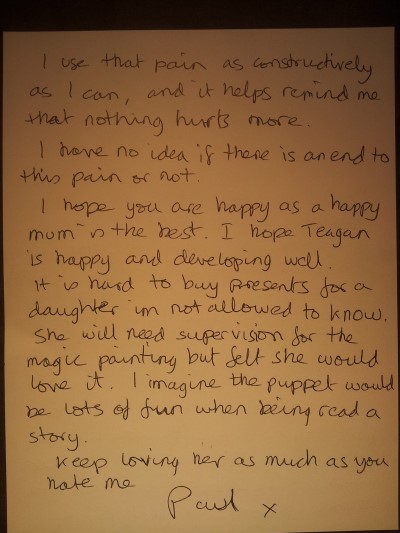 I use that pain as constructively
as I can, and it helps remind me
that nothing hurts more.
I have no idea if there is an end to
this pain or not.
I hope you are happy as a happy
mum is the best. I hope Teagan
is happy and developing well.
It is hard to buy presents for a
daughter im not allowed to know.
She will need supervision for the
magic painting but felt she would
love it. I imagine the puppet would
be lots of fun when being read a
story.
Keep loving her as much as you
hate me
Paul x